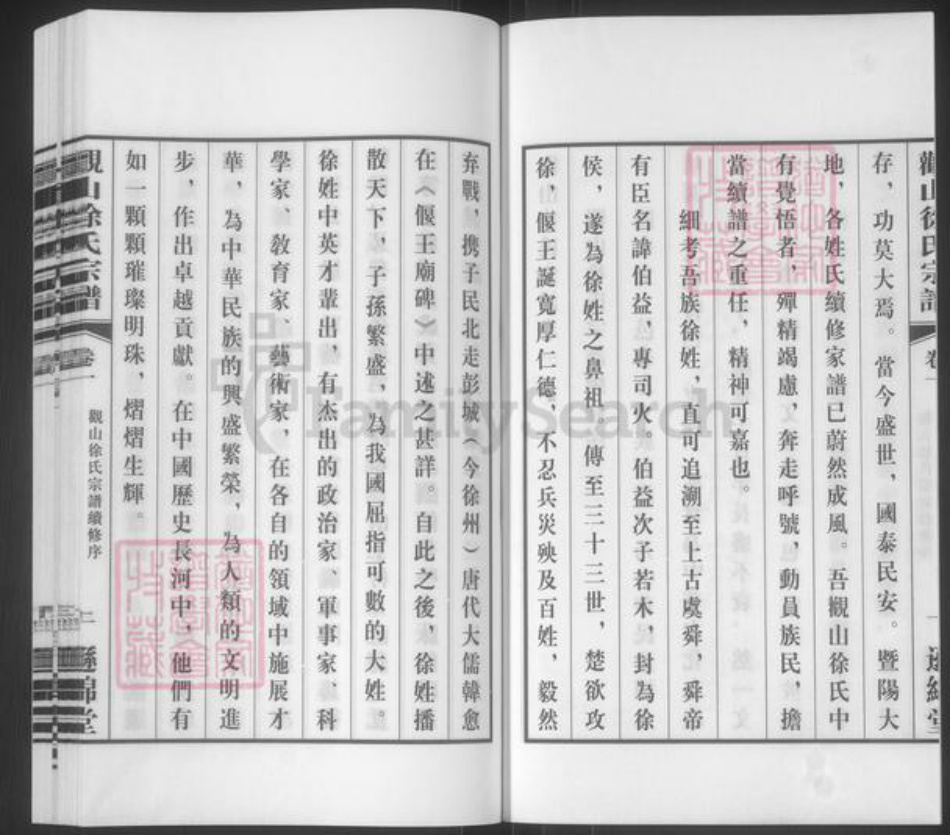 存，功莫大焉。當今盛世，國泰民安。暨陽大
地，各姓氏續修家譜已蔚然成風。吾觀山徐氏中
有覺悟者，殫精竭慮，奔走呼號，動員族民，擔
當續譜之重任，精神可嘉也。
細考吾族徐姓，直可追溯至上古虞舜，舜帝
有臣名諱伯益，專司火。伯益次子若木，封為徐
侯，遂為徐姓之鼻祖。傳至三十三世，楚欲攻
徐，偃王誕寬厚仁德，不忍兵災殃及百姓，毅然
弃戰，携子民北走彭城（今徐州）唐代大儒韓愈
在《偃王廟碑》中述之甚詳。自此之後，徐姓播
散天下，子孫繁盛，為我國屈指可數的大姓。
徐姓中英才輩出，有杰出的政治家、軍事家、科
學家、教育家、藝術家，在各自的領域中施展才
華，為中華民族的興盛繁榮，為人類的文明進
步，作出卓越貢獻。在中國歷史長河中，他們有
如一顆顆璀璨明珠，熠熠生輝。
觀山徐氏宗譜
卷一
觀山徐氏宗譜續修序
FamilySearch